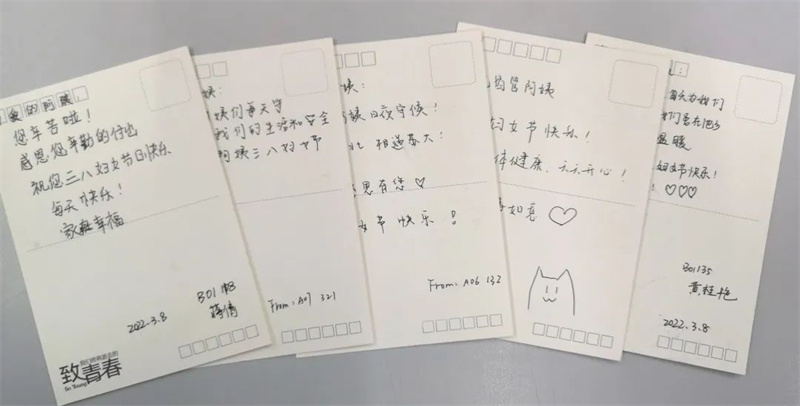 爱的阿姨：
您辛苦啦！
感恩您辛勤的付出
祝您三八妇女节日快乐
每天快乐！
家庭幸福
B01
蒋倩
2022.3.8
我们终将逝去的
致青春
So Young
姨：
姨们每天守
我们的生活和安全
阿姨三八妇女节
From: A07 321
姨：
姨日夜守候！
相遇基大！
恩有您♡
女节 快乐！
From: A06 132
宿管阿姨
妇女节快乐！
体健康、天天开心！
事如意♡
每天为我们
温暖
妇女节快乐！
！♡♡♡
B01135
黄桂艳
2022.3.8